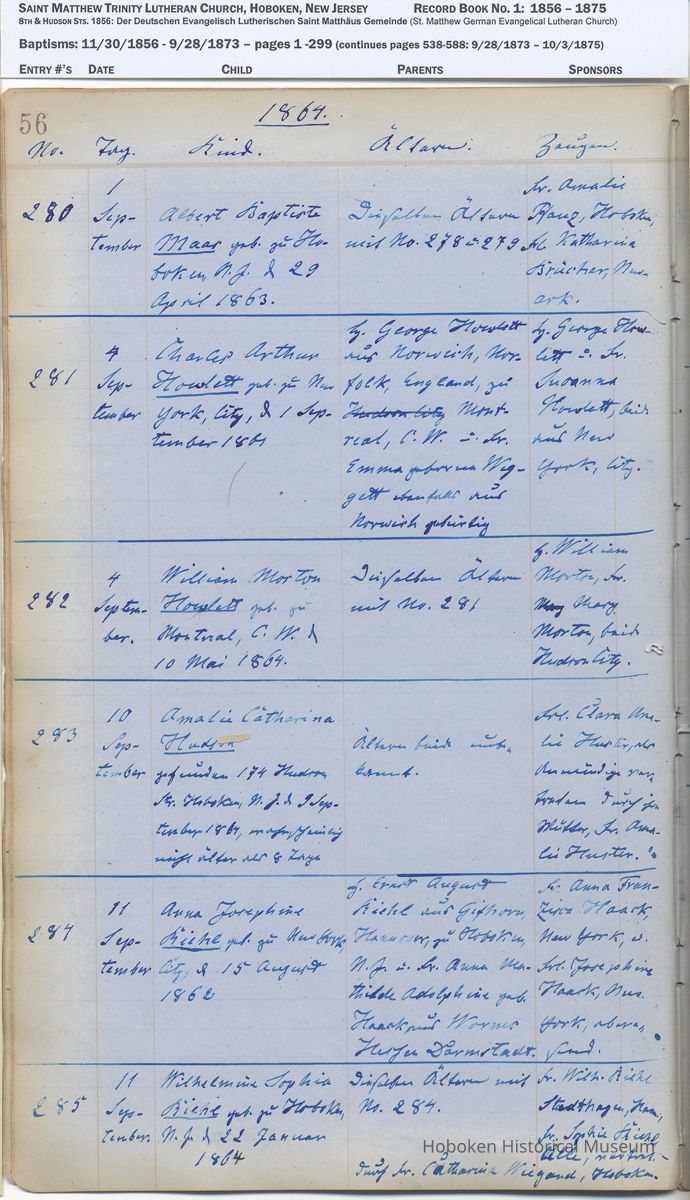 SAINT MATTHEW TRINITY LUTHERAN CHURCH, HOBOKEN, NEW JERSEY RECORD BOOK NO. 1: 1856 – 1875
8TH & HUDSON STS. 1856: Der Deutschen Evangelisch Lutherischen Saint Matthäus Gemeinde (St. Matthew German Evangelical Lutheran Church)
Baptisms: 11/30/1856 - 9/28/1873 – pages 1 -299 (continues pages 538-588: 9/28/1873 – 10/3/1875)
ENTRY #'S DATE CHILD PARENTS SPONSORS
56
1864.
No. Tag. Kind. Ältern. Zeugen.
280
1
Sep-
tember
Albert Baptiste
Maas geb. zu Ho-
boken, N. J. d. 29
April 1863.
Dieselben Ältern
mit No. 278 u 279
Fr. Amalie
Hoboken,
Frl. Katharina
Brücher, New-
ark.
281
4
Sep-
tember
Charles Arthur
Howlett geb. zu New
York, City, d. 1 Sep-
tember 1861
H. George Howlett
aus Norwich, Nor-
folk, England, zu
Hudson City Mont-
real, C. W. u. Fr.
Emma geborene Wig-
gett ebenfalls aus
Norwich gebürtig
H. George How-
lett u. Fr.
Susanna
Howlett, beide
aus New
York, City.
282
4
Septem-
ber.
William Morton
Howlett geb. zu
Montreal, C. W. d.
10 Mai 1864.
Dieselben Ältern
mit No. 281
H. William
Morton, Fr.
Mary
Morton, beide
Hudson City.
283
10
Sep-
tember
Amalie Catharina
Hudson
gefunden 174 Hudson
Str. Hoboken, N. J. d. 9 Sep-
tember 1864, wahrscheinlich
nicht älter als 8 Tage
Ältern beide unbe-
kannt.
Frl. Clara Ama-
lie Huster, als
Unmündige ver-
treten durch ihre
Mutter, Fr. Ama-
lie Huster.
284
11
Sep-
tember
Anna Josephine
Riehl geb. zu New York,
City, d. 15 August
1862
H. Ernst August
Riehl aus Gifhorn,
Hannover, zu Hoboken,
N. J. u. Fr. Anna Ma-
thilde Adolphine geb.
Haack aus Worms
Hessen Darmstadt.
Fr. Anna Fran-
ziska Haack,
New York, u.
Frl. Josephine
Haack, New
York,
285
11
Sep-
tember.
Wilhelmine Sophia
Riehl geb. zu Hoboken,
N. J. d. 22 Januar
1864
Dieselben Ältern mit
No. 284.
Fr. Wilh. Riehl
Stadthagen,
Fr. Sophie Riehl
durch Fr. Catharina Wiegand, Hoboken.
Hoboken Historical Museum